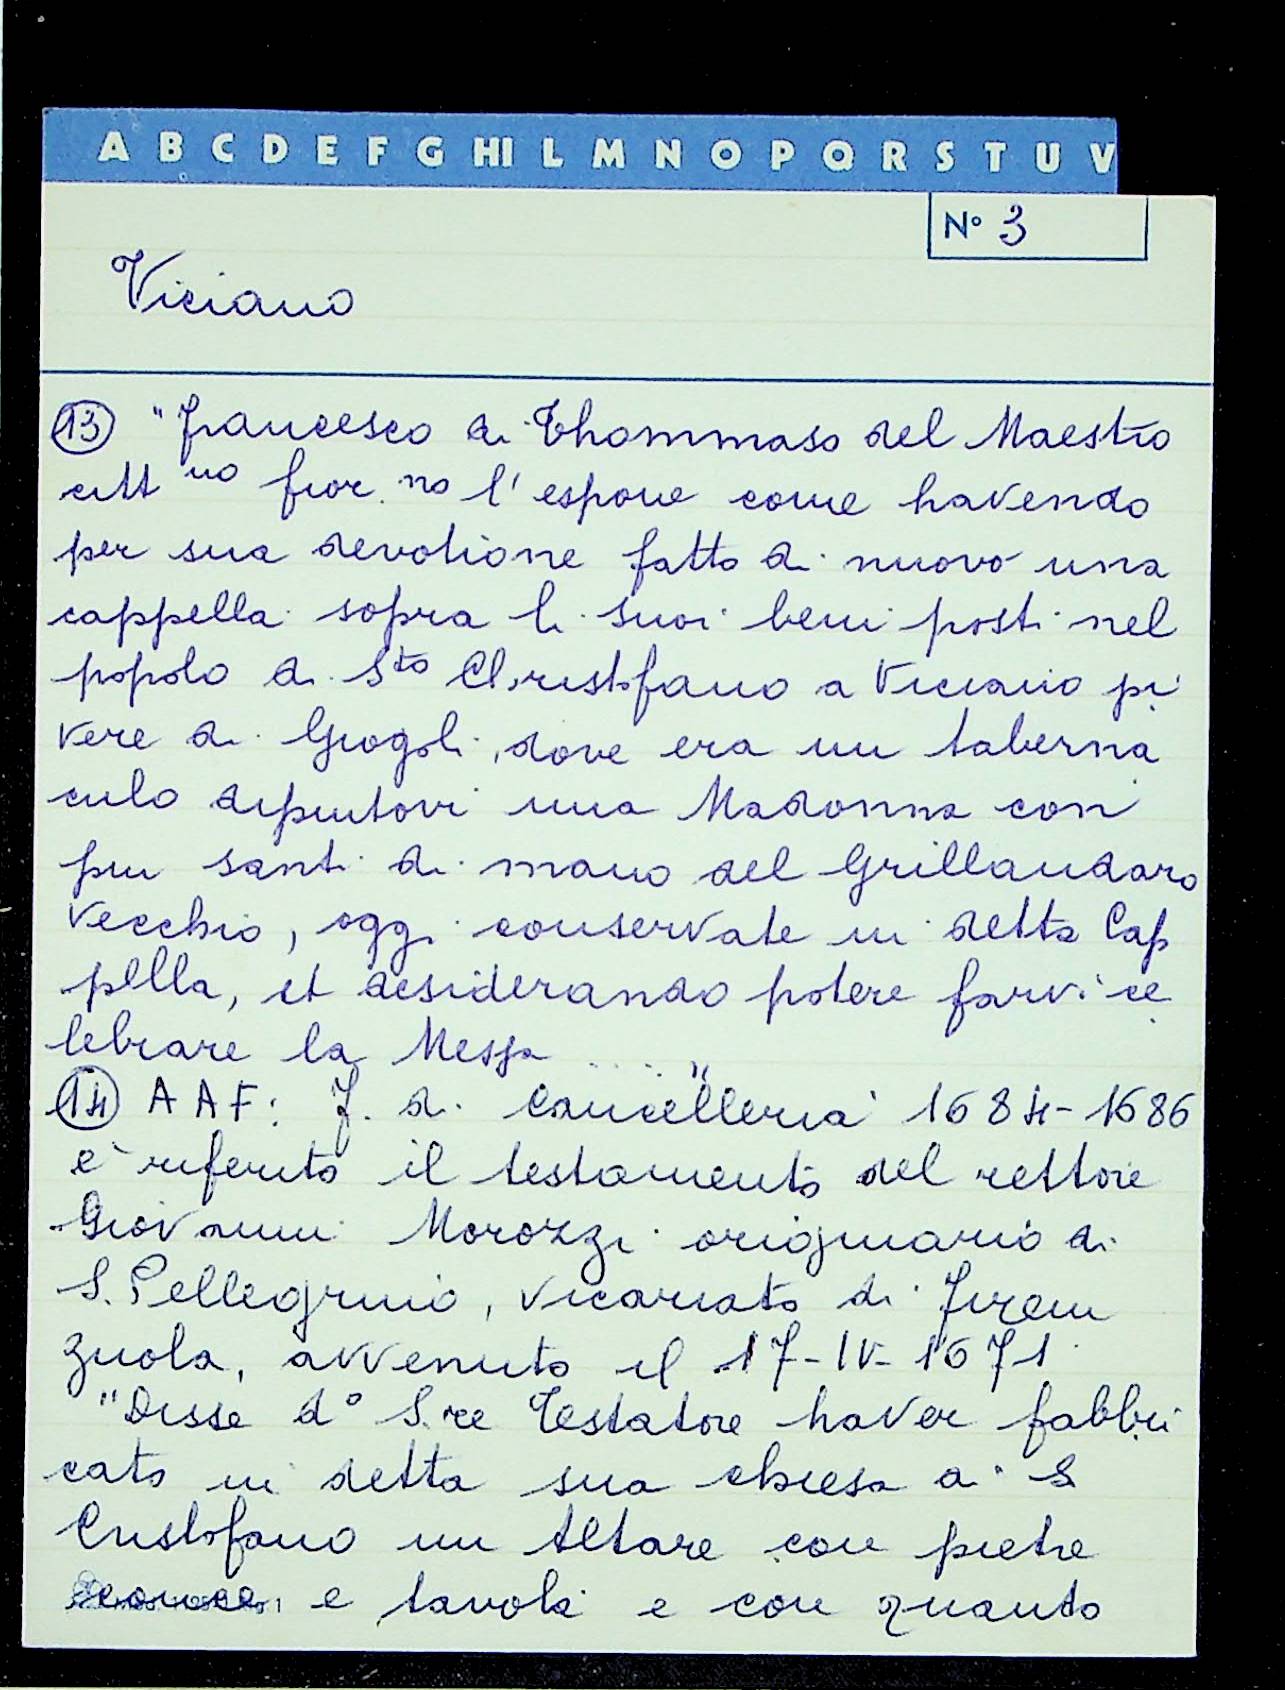 A B C D E F G HI L M N O P Q R S T U V
N° 3
Viciano
13 "Francesco di Thommaso del Maestro
citt no fior. no l'espone come havendo
per sua devotione fatto di nuovo una
cappella sopra li suoi beni posti nel
popolo di Sto Christofano a Viciano pi
vere di Giogoli, dove era un taberna
culo dipintovi una Madonna con
piu santi di mano del Grillandaro
Vecchio, oggi conservate in detta Cap
pella, et desiderando potere farvi ce
lebrare la Messa ...."
14 AAF: F. di Cancelleria 1684-1686
e' riferito il testamento del rettore
Giovanni Morozzi originario di
S. Pellegrino, vicariato di Firen
zuola, avvenuto il 17-IV-1671
"Disse d° S.re Testatore haver fabbri
cato in detta sua chiesa di S
Cristofano un Altare con pietre
e tavola e con quanto